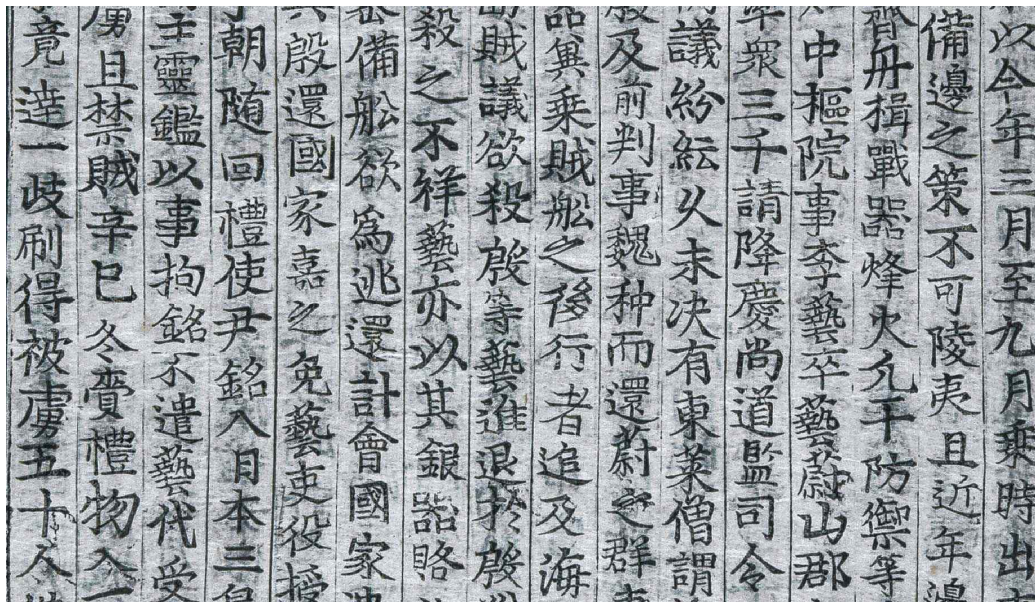 以今年三月至九月乗時出
備邊之策不可陵夷且近年邊
舟楫戰器烽火凡干防禦等
中樞院事李藝卒藝蔚山郡
率衆三千請降慶尚道監司令
議紛紜久未决有東萊僧謂
殷及前判事魏种而還蔚之群
器兾乗賊舩之後行者追及海
賊議欲殺殷等藝進退於殷
殺之不祥藝亦以其銀器賂
備舩欲爲逃還計會國家
殷還國家嘉之免藝吏役授
朝随回禮使尹銘入日本三
主靈鑑以事拘銘不遣藝代受
虜且禁賊辛巳冬賫禮物入一
竟達一歧刷得被虜五十人